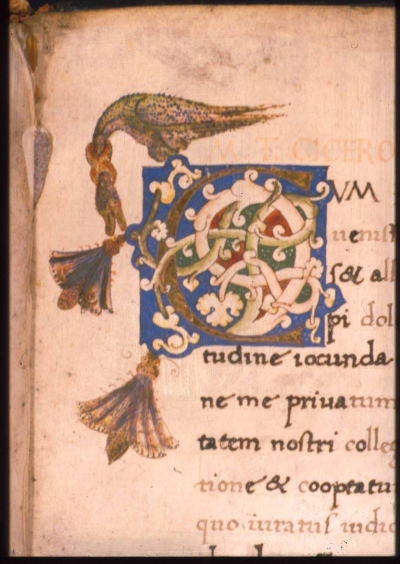 M. T. CICERO
CVM
ueniss
s& all
pi dol
tudine iocunda
ne me priuatum
tatem nostri colleg
tione & cooptatu
quo iuratus iudic